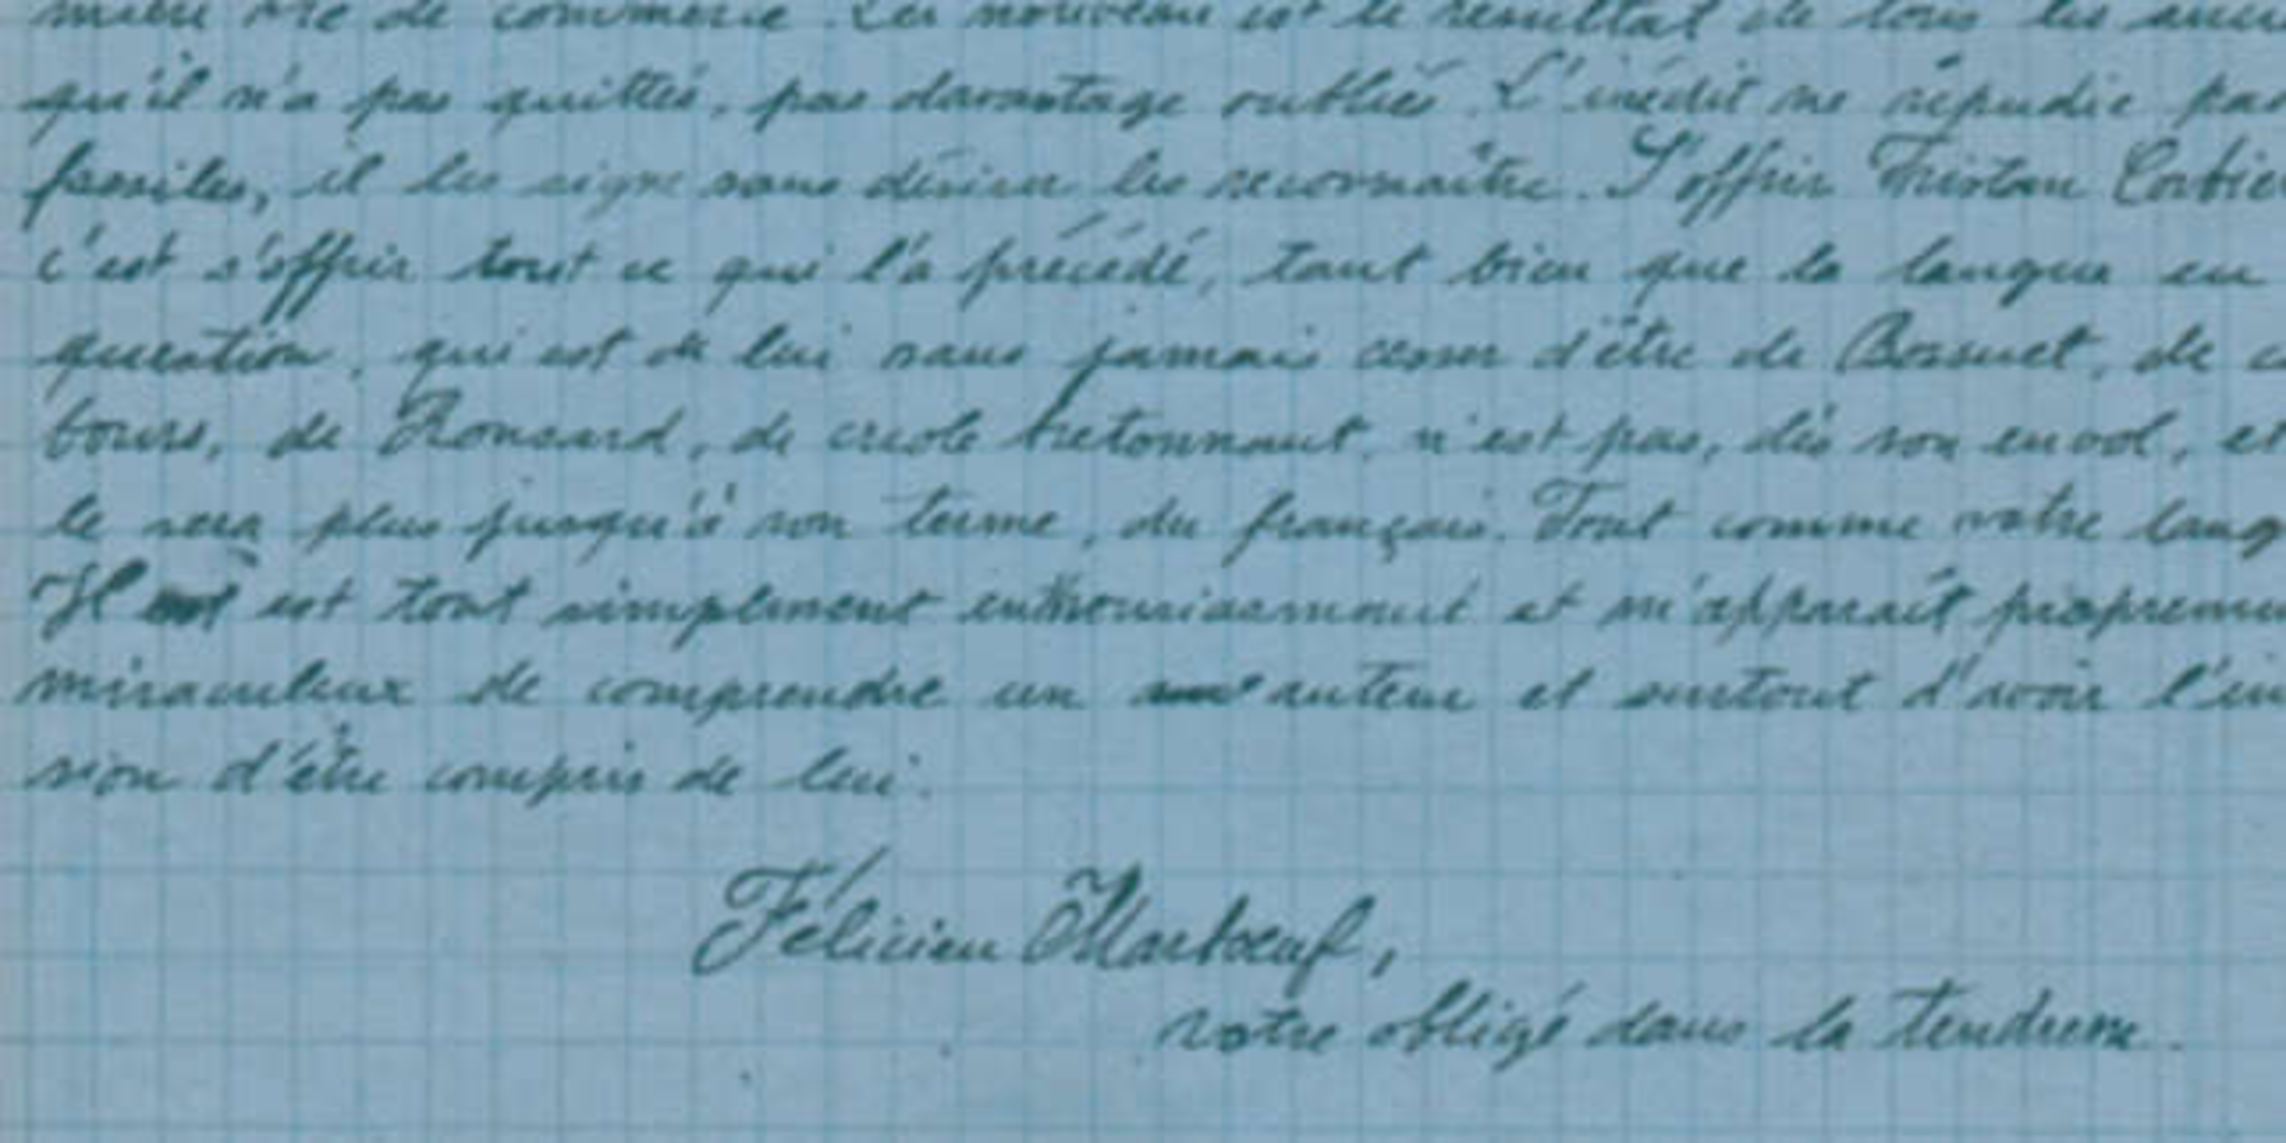 de commerce. Un nouveau est le résultat de tous les
qu'il n'a pas quittés, pas davantage oubliés. L'inédit ne répudie pas
fossiles, il les signe sans désirer les reconnaître. S'offrir Tristan Corbiè
c'est s'offrir tout ce qui l'a précédé, tant bien que la langue en
question, qui est de lui sans jamais cesser d'être de Bossuet, de c
bours, de Ronsard, de créole bretonnant, n'est pas, dès son envol, et
le sera plus jusqu'à son terme, du français. Tout comme votre lang
Il est tout simplement enthousiasmant et m'apparaît propremen
miraculeux de comprendre un auteur et surtout d'avoir l'im
sion d'être compris de lui.
Félicien Marboeuf,
votre obligé dans la tendresse.